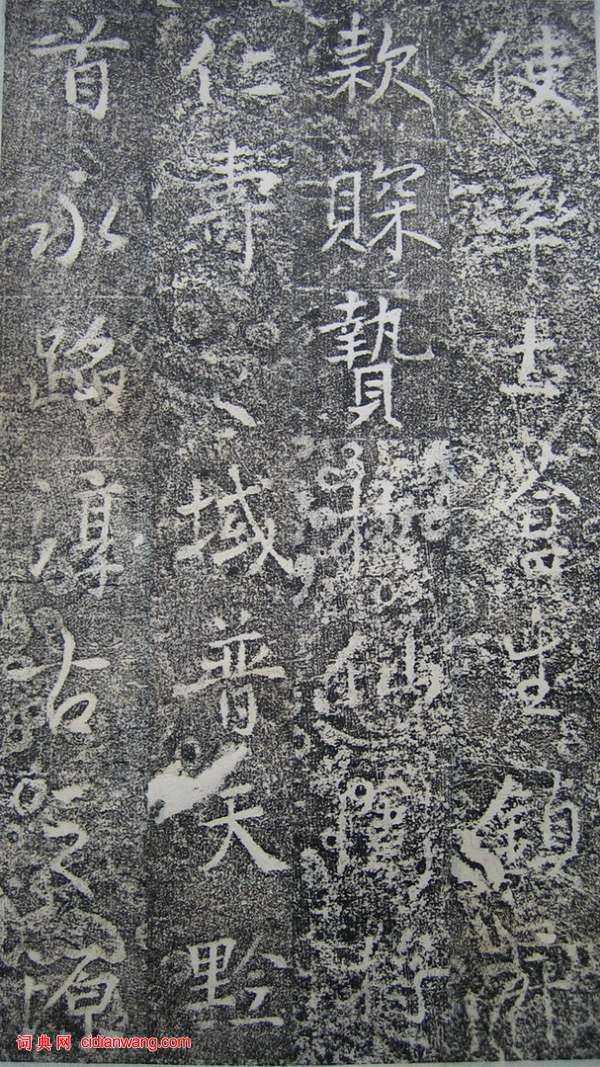 使率土蒼生鎮
款賝贄於仙
仁壽之域普天黔
首永蹈淳古之源
词典网 cidianwang.com